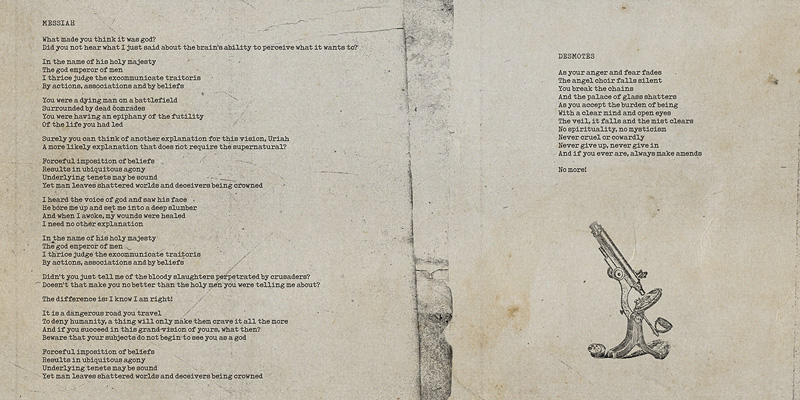 MESSIAH
What made you think it was god?
Did you not hear what I just said about the brain's ability to perceive what it wants to?
In the name of his holy majesty
The god emperor of men
I thrice judge the excommunicate traitoris
By actions, associations and by beliefs
You were a dying man on a battlefield
Surrounded by dead comrades
You were having an epiphany of the futility
Of the life you had led
Surely you can think of another explanation for this vision, Uriah
A more likely explanation that does not require the supernatural?
Forceful imposition of beliefs
Results in ubiquitous agony
Underlying tenets may be sound
Yet man leaves shattered worlds and deceivers being crowned
I heard the voice of god and saw his face
He bore me up and set me into a deep slumber
And when I awoke, my wounds were healed
I need no other explanation
In the name of his holy majesty
The god emperor of men
I thrice judge the excommunicate traitoris
By actions, associations and by beliefs
Didn't you just tell me of the bloody slaughters perpetrated by crusaders?
Doesn't that make you no better than the holy men you were telling me about?
The difference is: I know I am right!
It is a dangerous road you travel
To deny humanity, a thing will only make them crave it all the more
And if you succeed in this grand vision of yours, what then?
Beware that your subjects do not begin to see you as a god
Forceful imposition of beliefs
Results in ubiquitous agony
Underlying tenets may be sound
Yet man leaves shattered worlds and deceivers being crowned
DESMOTES
As your anger and fear fades
The angel choir falls silent
You break the chains
And the palace of glass shatters
As you accept the burden of being
With a clear mind and open eyes
The veil, it falls and the mist clears
No spirituality, no mysticism
Never cruel or cowardly
Never give up, never give in
And if you ever are, always make amends
No more!